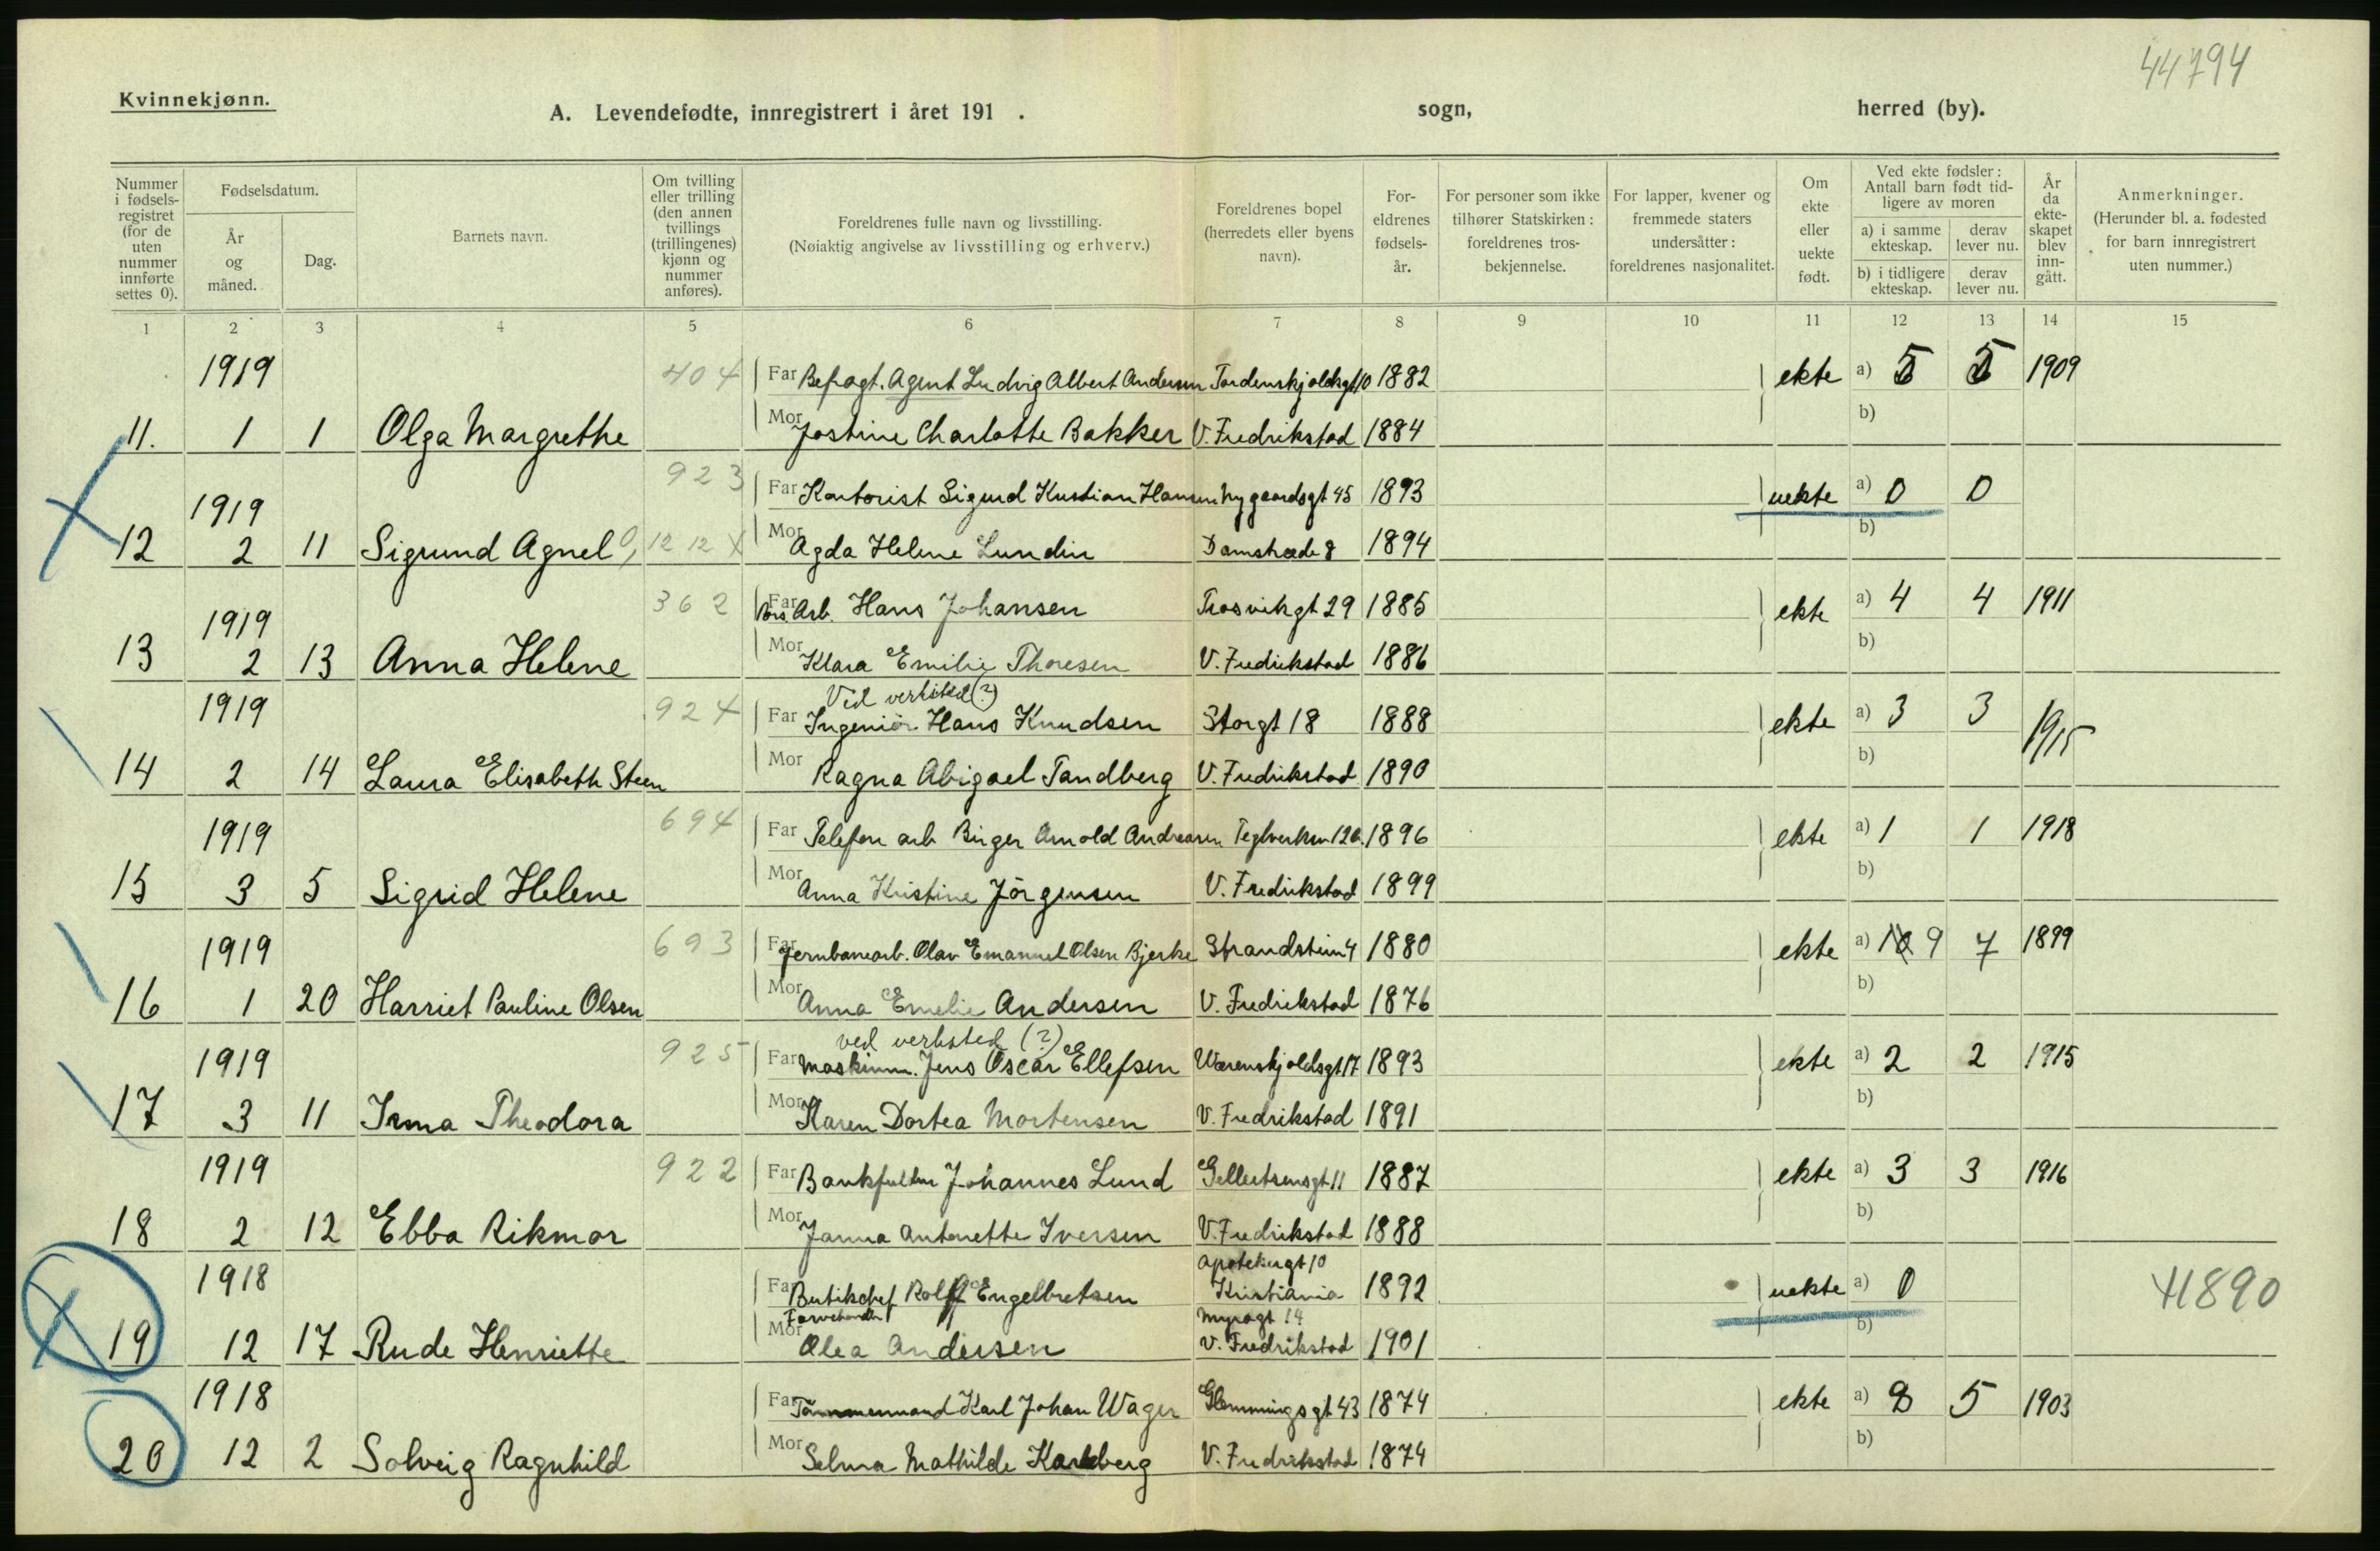 44794
Kvinnekjønn.
A. Levendefødte, innregistrert i året 191 . sogn, herred (by).
Nummer i fødsels-registret (for de uten nummer innførte settes 0).
Fødselsdatum.
År og måned.
Dag.
Barnets navn.
Om tvilling eller trilling (den annen tvillings (trillingenes) kjønn og nummer anføres).
Foreldrenes fulle navn og livsstilling.
(Nøiaktig angivelse av livsstilling og erhverv.)
Foreldrenes bopel (herredets eller byens navn).
For-eldrenes fødsels-år.
For personer som ikke tilhører Statskirken: foreldrenes tros-bekjennelse.
For lapper, kvener og fremmede staters undersåtter: foreldrenes nasjonalitet.
Om ekte eller uekte født.
Ved ekte fødsler: Antall barn født tid-ligere av moren
a) i samme ekteskap.
derav lever nu.
b) i tidligere ekteskap.
derav lever nu.
År da ekte-skapet blev inn-gått.
Anmerkninger.
(Herunder bl. a. fødested for barn innregistrert uten nummer.)
1 2 3 4 5 6 7 8 9 10 11 12 13 14 15
1919 404 Far Befragt. Agent Ludvig Albert Andersen Tordenskjoldsgt 10 1882 ekte a) 5 5 1909
11. 1 1 Olga Margrethe Mor Jostine Charlotte Bakker V. Fredrikstad 1884 b)
1919 923 Far Kontorist Sigurd Kristian Hansen Nygaardsgt 45 1893 uekte a) 0 0
12 2 11 Sigrund Agnel 12 12 X Mor Agda Helene Lundin Damstræde 8 1894 b)
1919 362 Far Bris. Arb. Hans Johansen Trosvikgt 29 1885 ekte a) 4 4 1911
13 2 13 Anna Helene Mor Klara Emilie Thoresen V. Fredrikstad 1886 b)
Ved verksted (?)
1919 924 Far Ingeniör Hans Knudsen Storgt 18 1888 ekte a) 3 3 1915
14 2 14 Laura Elisabeth Steen Mor Ragna Abigael Tandberg V. Fredrikstad 1890 b)
1919 694 Far Telefon arb Birger Arnold Andreasen Teglverksv 12b. 1896 ekte a) 1 1 1918
15 3 5 Sigrid Helene Mor Anna Kristine Jörgensen V. Fredrikstad 1899 b)
1919 693 Far Jernbanearb. Olav Emanuel Olsen Bjerke Strandstien 4 1880 ekte a) 10 9 7 1899
16 1 20 Harriet Pauline Olsen Mor Anna Emelie Andersen V. Fredrikstad 1876 b)
ved verksted (?)
1919 925 Far Maskinm. Jens Oscar Ellefsen Wærenskjoldsgt 17 1893 ekte a) 2 2 1915
17 3 11 Irma Theodora Mor Karen Dortea Mortensen V. Fredrikstad 1891 b)
1919 922 Far Bankfuldm Johannes Lund Gellertsensgt 11 1887 ekte a) 3 3 1916
18 2 12 Ebba Rikmor Mor Janna Antonette Iversen V. Fredrikstad 1888 b)
Apotekergt 10
1918 Far Butikchef Rolf Engelbretsen Kristiania 1892 uekte a) 0 41890
Farvehandler Myragt 14
19 12 17 Rude Henriette Mor Olea Andersen V. Fredrikstad 1901 b)
1918 Far Tömmermand Karl Johan Wager Glemmingsgt 43 1874 ekte a) 8 5 1903
20 12 2 Solveig Ragnhild Mor Selma Mathilde Karlberg V. Fredrikstad 1874 b)